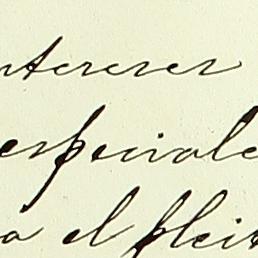 ntereses
especiale
o el pleit